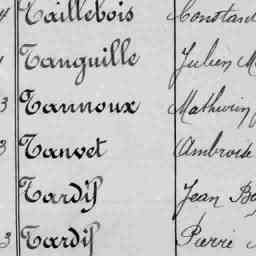 4 Taillebois Constant
Tanguille Julien M
3 Tannoux Mathurin
3 Tanvet Ambroise
Tardif Jean Ba
3 Tardif Pierre